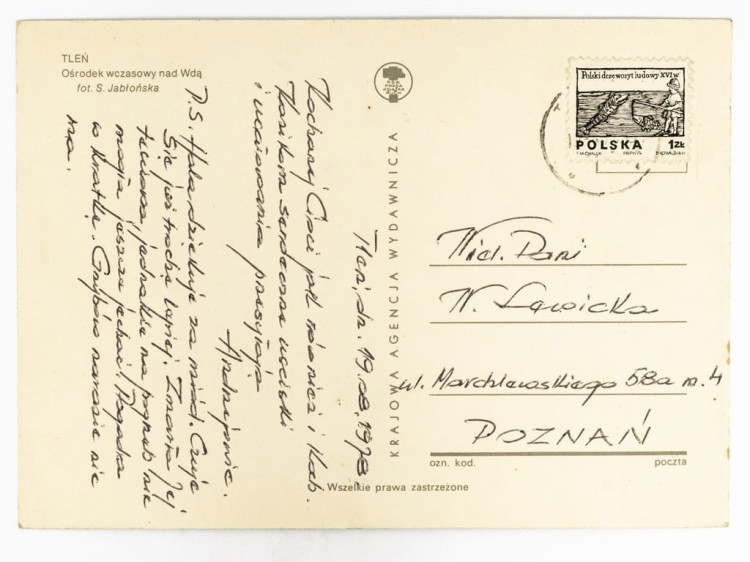 TLEŃ
Ośrodek wczasowy nad Wdą
fot. S. Jabłońska
Tleń, dn. 19.08.1978.
Kochanej Cioci jak również i Kab.
serdeczne uściski
i ucałowania przesyłają
Andrzejowie.
P.S. Hala dziękuje za miód. Czuje
się już trochę lepiej. Zmarła jej
jednakże na pogrzeb nie
mogła jeszcze jechać. Pogoda
w kratkę. Grzybów narazie nie
ma.
KRAJOWA AGENCJA WYDAWNICZA
Polski drzeworyt ludowy XVI w
POLSKA 1 ZŁ
Wiel. Pani
W. Ławicka
ul. Marchlewskiego 58a m. 4
POZNAŃ
ozn. kod. poczta
Wszelkie prawa zastrzeżone